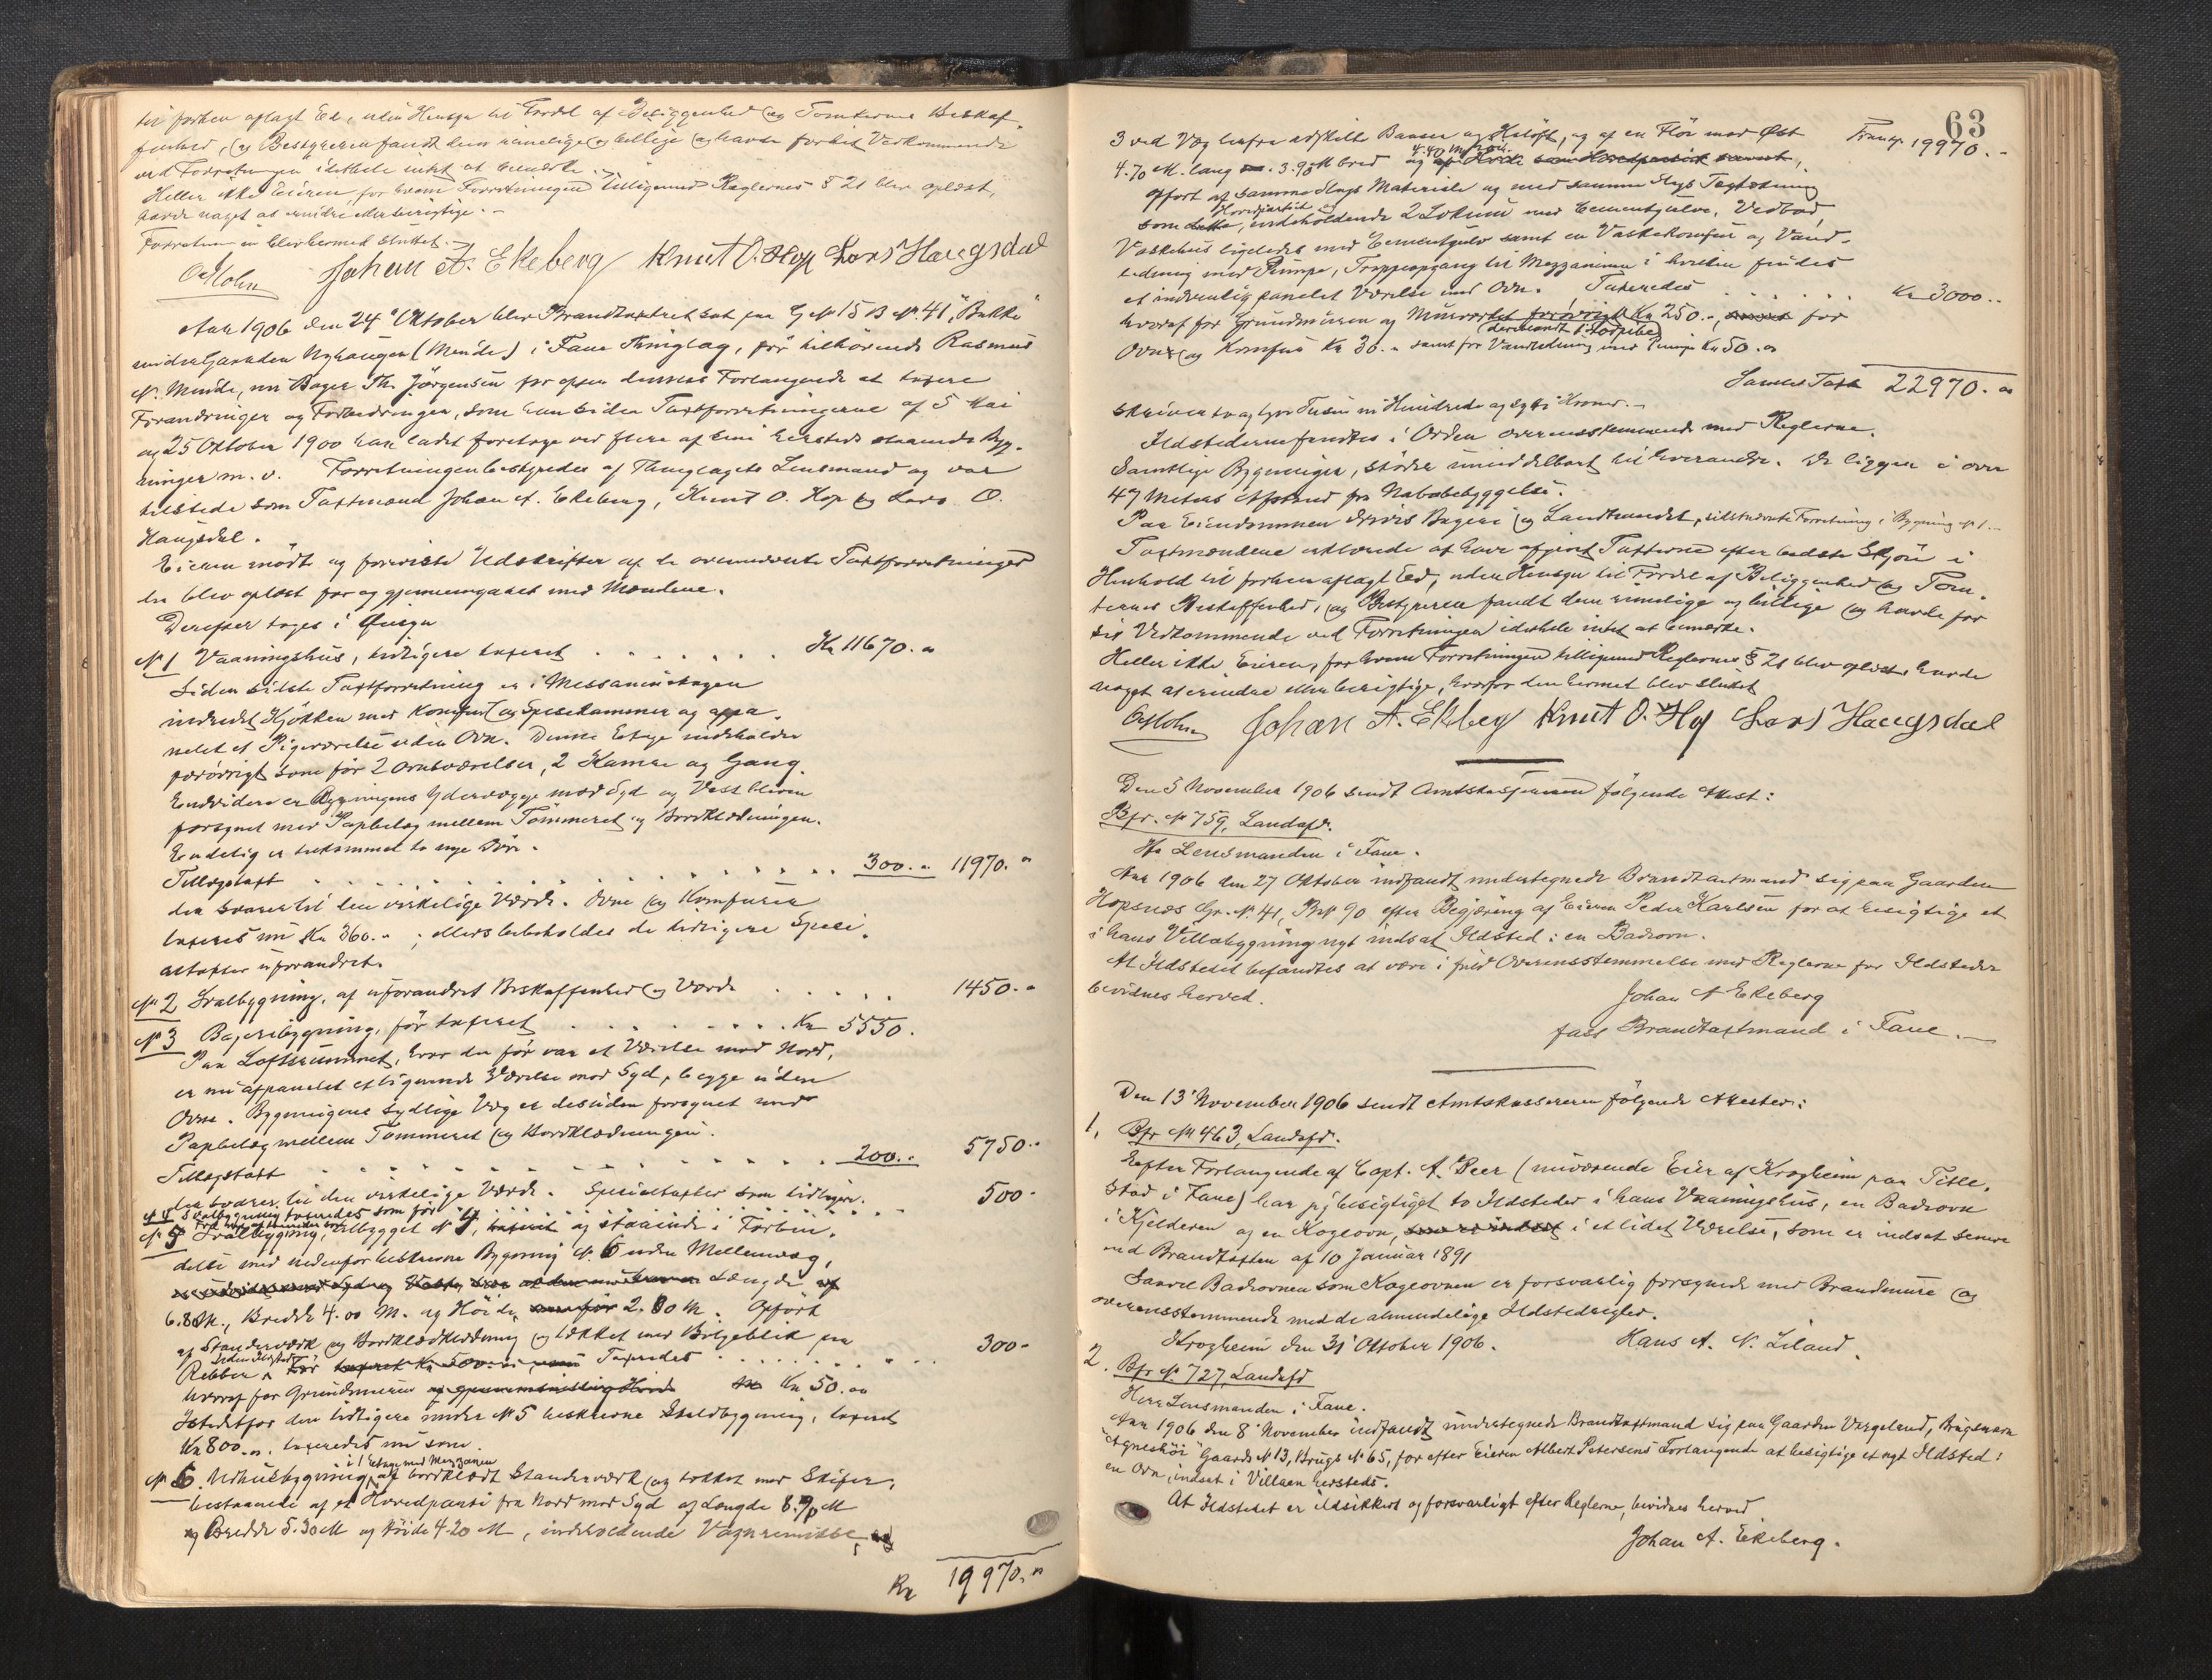 til forhen aflagt Ed, uden Hensyn til Fordel af Beliggenhed og Tomternes Beskaf-
fenhed, og Bestyreren fandt dem rimelige og billige og havde forsit Vedkommende
ved Forretningen idethele intet at bemærke.
Heller ikke Eieren, for hvem Forretningen tilligemed Reglernes § 21 blev oplæst,
havde noget at erindre eller berigtige. -
Forretningen blev hermed sluttet. -
Johan A. Ekeberg Knut O. Hop Lars Haugsdal
Aar 1906 den 24de Oktober blev Brandtaxtret sat paa G. No 15 B. No. 41, "Bakke"
under Gaarden Nyhaugen (Minde) i Fane Thinglag, før tilhørende Rasmus
N. Minde, nu Bager Th. Jørgensen for efter dennes Forlangende at taxere
Forandringer og Forbedringer, som han siden Taxtforretningerne af 5 Mai
og 25 Oktober 1900 har ladet foretage ved flere af sine hersteds staaende Byg-
ninger m. v. Forretningen bestyredes af Thinglagets Lensmand og var
tilstede som Taxtmænd Johan A. Ekeberg, Knut O. Hop og Lars O.
Haugsdal.
Eieren mødte og foreviste Udskrifter af de ovennævnte Taxtforretninger
der blev oplæst for og gjennemgaaet med Mændene.
Derefter toges i Øiesyn
No 1 Vaaningshus, tidligere taxeret . . . . . . Kr 11670. "
Siden sidste Taxtforretning er i Messaninetagen
indredet Kjøkken med Komfur og Spisekammer og afpa-
nelet et Pigeværelse uden Ovn. Denne Etage indeholder
forøvrigt som før 2 Ovnsværelser, 2 Kamre og Gang.
Endvidere er Bygningens Ydervægge mod Syd og Vest bleven
forsynet med Papbelæg mellem Tømmeret og Bordklædningen.
Endelig er tilkommet to nye Døre.
Tillægstaxt . . . . . . . . . . . . 300. " 11970. "
der svarer til den virkelige Værdi. Ovne og Komfurer
taxeres nu Kr 360. " ; ellers beholdes de tidligere Speci-
altaxter uforandret.
No 2 Svalbygning, af uforandret Beskaffenhed og Værdi . . . . . 1450. "
No 3 Bageribygning, før taxeret . . . . . . . Kr 5550.
Paa Loftsrummet, hvor der før var et Værelse mod Nord,
er nu afpanelet et lignende Værelse mod Syd, begge uden
Ovne. Bygningens sydlige Væg er desuden forsynet med
Papbelæg mellem Tømmeret og Bordklædningen.
Tillægstaxt . . . . . . . . . . . 200. " 5750. "
der svarer til den virkelige Værdi. Specialtaxter som tidligere.
No 4 Svalbygning taxeredes som før . . . . . . . . . . 500 -
No 5 Svalbygning, tilbygget No 4, taxeret og staaende i Forbin-
delse med nedenfor beskrevne Bygning No. 6 uden Mellemvæg,
Længde af
6.80 M., Bredde 4.00 M. og Høide 2.80 M. Opført
af Standerværk og Bordklædning og tækket med Bølgeblik paa
Ribber. Taxeredes . . . . . . . . . 300 -
hvoraf for Grundmuren Kr 50. oo
Istedetfor den tidligere under No 5 beskrevne Staldbygning, taxeret
Kr 800. ", taxeredes nu som
i 1 Etage med Mezzanin
No 6. Udhusbygning, af bordklædt Standerværk og tækket med Skifer,
bestaaende af et Hovedparti fra Nord mod Syd af Længde 8.70 M
og Bredde 5.30 M og Høide 4.20 M, indeholdende Vognremisse,
Kr 19970. "
63
3 ved Væg herfra adskilte Baaser og Høloft, og af en Fløi mod Øst
Transp 19970. -
4.70 M. lang 3.90 M bred og 4.40 M høi
opført af samme Slags Materiale og med samme Slags Tagtækning
som Hovedpartiet og indeholdende 2 Lokumer med Cementgulve, Vedbod,
Vaskehus ligeledes med Cementgulv samt en Vaskekomfur og Vand-
ledning med Pumpe, Trappeopgang til Mezzaninen i hvilken findes
et indvendig panelet Værelse med Ovn. Taxeredes . . . . . . Kr 3000. "
hvoraf for Grundmuren og Murværket forøvrigt Kr 250. ", for
Ovne og Komfur Kr 30. " samt for Vandledning med Pumpe Kr 50. "
Samlet Taxt 22970. "
skriver to og tyve Tusin ni Hundrede og sytti Kroner. -
Ildstederne fandtes i Orden overensstemmende med Reglerne.
Samtlige Bygninger, støder umiddelbart til hverandre. De ligger i over
47 Meters Afstand fra Nabobebyggelse.
Paa Eiendommen drives Bageri og Landhandel, sidstnævnte Forretning i Bygning No 1. -
Taxtmændene erklærede at have afgivet Taxterne efter bedste Skjøn i
Henhold til forhen aflagt Ed, uden Hensyn til Fordel af Beliggenhed og Tom-
ternes Beskaffenhed, og Bestyreren fandt dem rimelige og billige og havde for
sit Vedkommende ved Forretningen idethele intet at bemærke.
Heller ikke Eieren, for hvem Forretningen tilligemed Reglernes § 21 blev oplæst, havde
noget at erindre eller berigtige, hvorfor den hermed blev sluttet
Johan A. Ekeberg Knut O. Hop Lars Haugsdal
Den 5 November 1906 sendt Amtskassereren følgende Attest:
Bfr. No 759, Landafd.
Hr Lensmanden i Fane.
Aar 1906 den 27 Oktober indfandt undertegnede Brandtaxtmand sig paa Gaarden
Hopsnes Gr. No. 41, B. No 90 efter Begjæring af Eieren Peder Karlsen for at besigtige et
i hans Villabygning nyt indsat Ildsted: en Badeovn.
At Ildstedet befandtes at være i fuld Overensstemmelse med Reglerne for Ildsteder
bevidnes herved.
Johan A Ekeberg
fast Brandtaxtmand i Fane. -
Den 13' November 1906 sendt Amtskassereren følgende Attester:
1, Bfr No 463, Landafd.
Efter Forlangende af Capt. A. Beer (nuværende Eier af Krogheim paa Tirle-
stad i Fane) har jeg besigtiget to Ildsteder i hans Vaaningshus, en Badeovn
i Kjelderen og en Kogeovn, i et lidet Værelse, som er indsat senere
end Brandtaxten af 10 Januar 1891
Saavel Badeovnen som Kogeovnen er forsvarlig forsynede med Brandmure og
overensstemmende med de almindelige Ildstedregler.
Krogheim den 31' Oktober 1906. Hans A. N. Liland.
2. Bfr No. 727, Landafd
Herr Lensmanden i Fane.
Aar 1906 den 8' November indfandt undertegnede Brandtaxtmand sig paa Gaarden Vergeland, Brugsnavn
"Agneshøi" Gaards No 13, Brugs No 65, for efter Eieren Albert Petersens Forlangende at besigtige et nyt Ildsted:
en Ovn, indsat i Villaen hersteds.
At Ildstedet er ildsikkert og forsvarligt efter Reglerne, bevidnes herved
Johan A. Ekeberg.